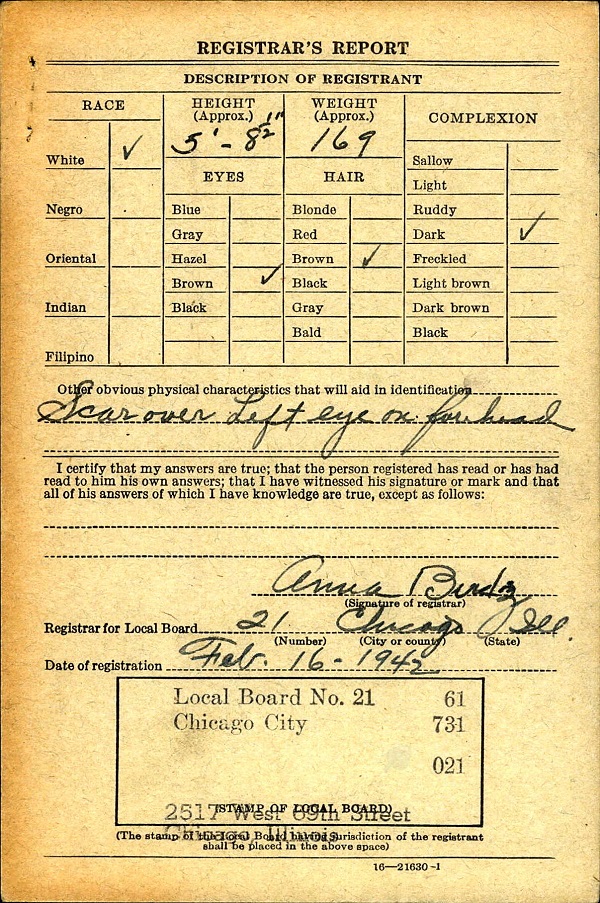 REGISTRAR'S REPORT
DESCRIPTION OF REGISTRANT
RACE
HEIGHT (Approx.)
WEIGHT (Approx.)
COMPLEXION
5' - 8 1/2"
169
White ✓
Sallow
EYES
HAIR
Light
Negro
Blue
Blonde
Ruddy
Gray
Red
Dark ✓
Oriental
Hazel
Brown ✓
Freckled
Brown ✓
Black
Light brown
Indian
Black
Gray
Dark brown
Bald
Black
Filipino
Other obvious physical characteristics that will aid in identification
Scar over Left eye on forehead
I certify that my answers are true; that the person registered has read or has had
read to him his own answers; that I have witnessed his signature or mark and that
all of his answers of which I have knowledge are true, except as follows:
Anna
(Signature of registrar)
Registrar for Local Board 21 Chicago Ill.
(Number) (City or county) (State)
Date of registration Feb. 16 - 1942
Local Board No. 21 61
Chicago City 731
021
(STAMP OF LOCAL BOARD)
2517 West 69th Street
Chicago, Illinois
(The stamp of the Local Board having jurisdiction of the registrant
shall be placed in the above space)
16—21630-1